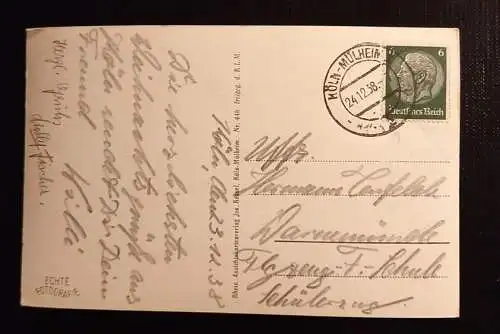 Köln, den 23.12.38
Die herzlichsten
Weihnachtsgrüße aus
Köln sendet Dir Dein
Freund
Willi
Herzl. Grüße
Willy Fischer.
ECHTE
FOTOGRAFIE
Rhein. Ansichtskartenverlag Jos. Köln-Mülheim. Nr. 446 Freigeg. d. R.L.M.
KÖLN-MÜLHEIM
24.12.38.
6 6
Deutsches Reich
Uffz.
Hermann
Warnemünde
Flugzeug-F.-Schule
Schülerzug.